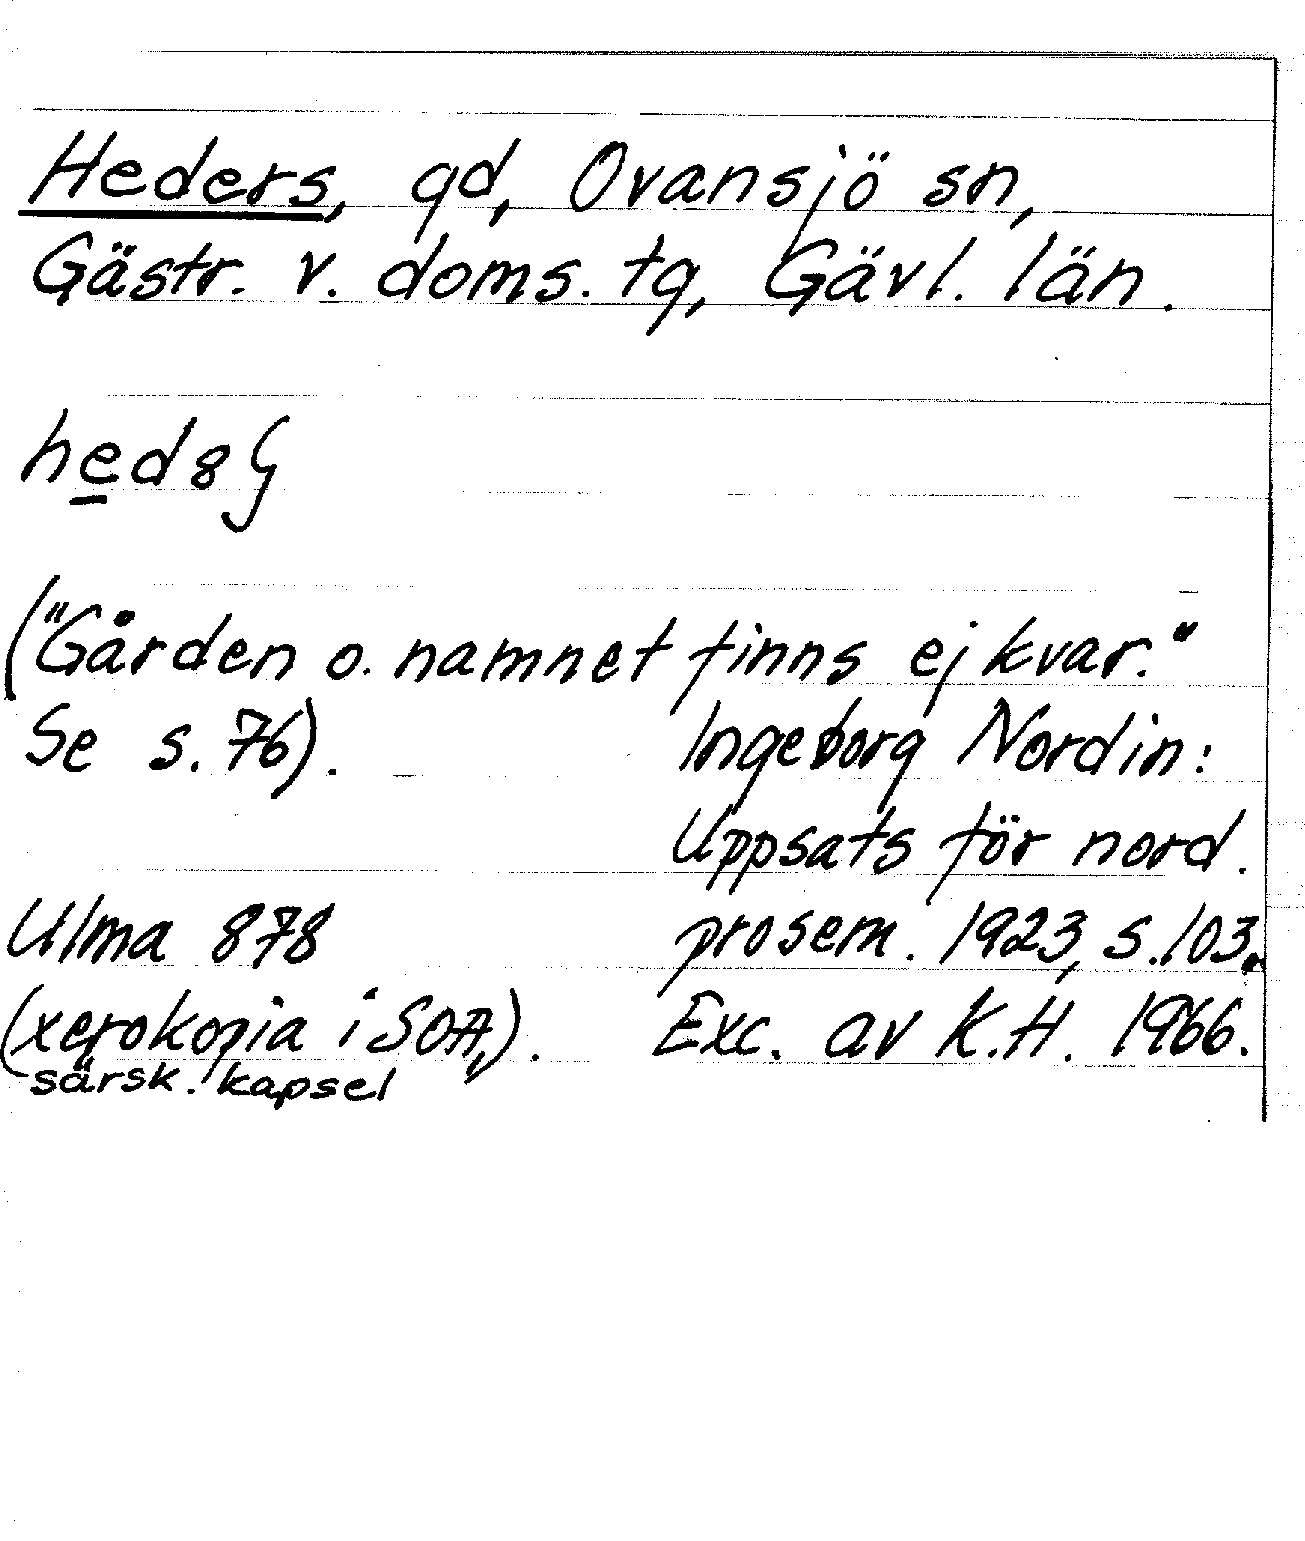 Heders, gd, Ovansjö sn,
Gästr. v. doms. tg, Gävl. län.
("Gården o. namnet finns ej kvar."
Se s. 76).
Ingeborg Nordin:
Uppsats för nord.
prosem. 1923, s. 103.
Exc. av K.H. 1966.
Ulma 878
(xerokopia i SOA,).
särsk. kapsel